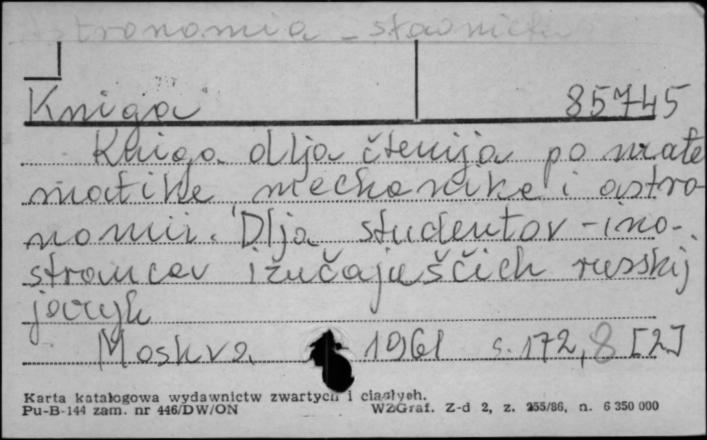 Astronomia - słownictwo
Kniga 85745
Kniga dlja čtenija po mate
matike, mechanike i astro-
nomii. Dlja studentov - ino-
strancev izučajuščich russkij
jazyk
Moskva 1961 s. 172, 8 [2]
Karta katalogowa wydawnictw zwartych i ciągłych.
Pu-B-144 zam. nr 446/DW/ON WZGraf. Z-d 2, z. 255/86, n. 6 350 000